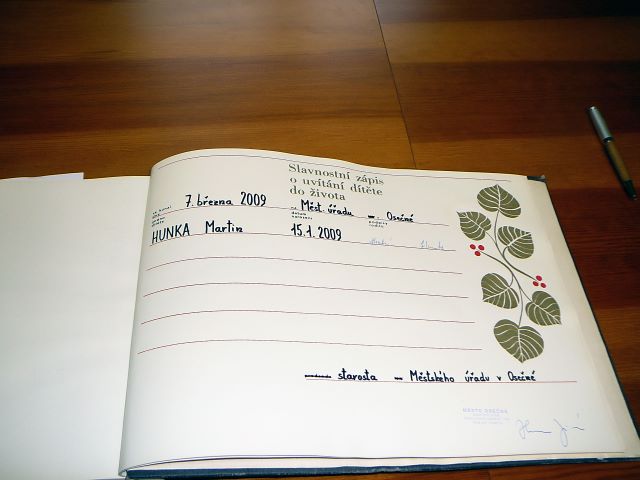 Slavnostní zápis
o uvítání dítěte
do života
7. března 2009 Měst. úřadu Osečné
HUNKA Martin 15.1.2009
starosta Městského úřadu v Osečné
MĚSTO OSEČNÁ